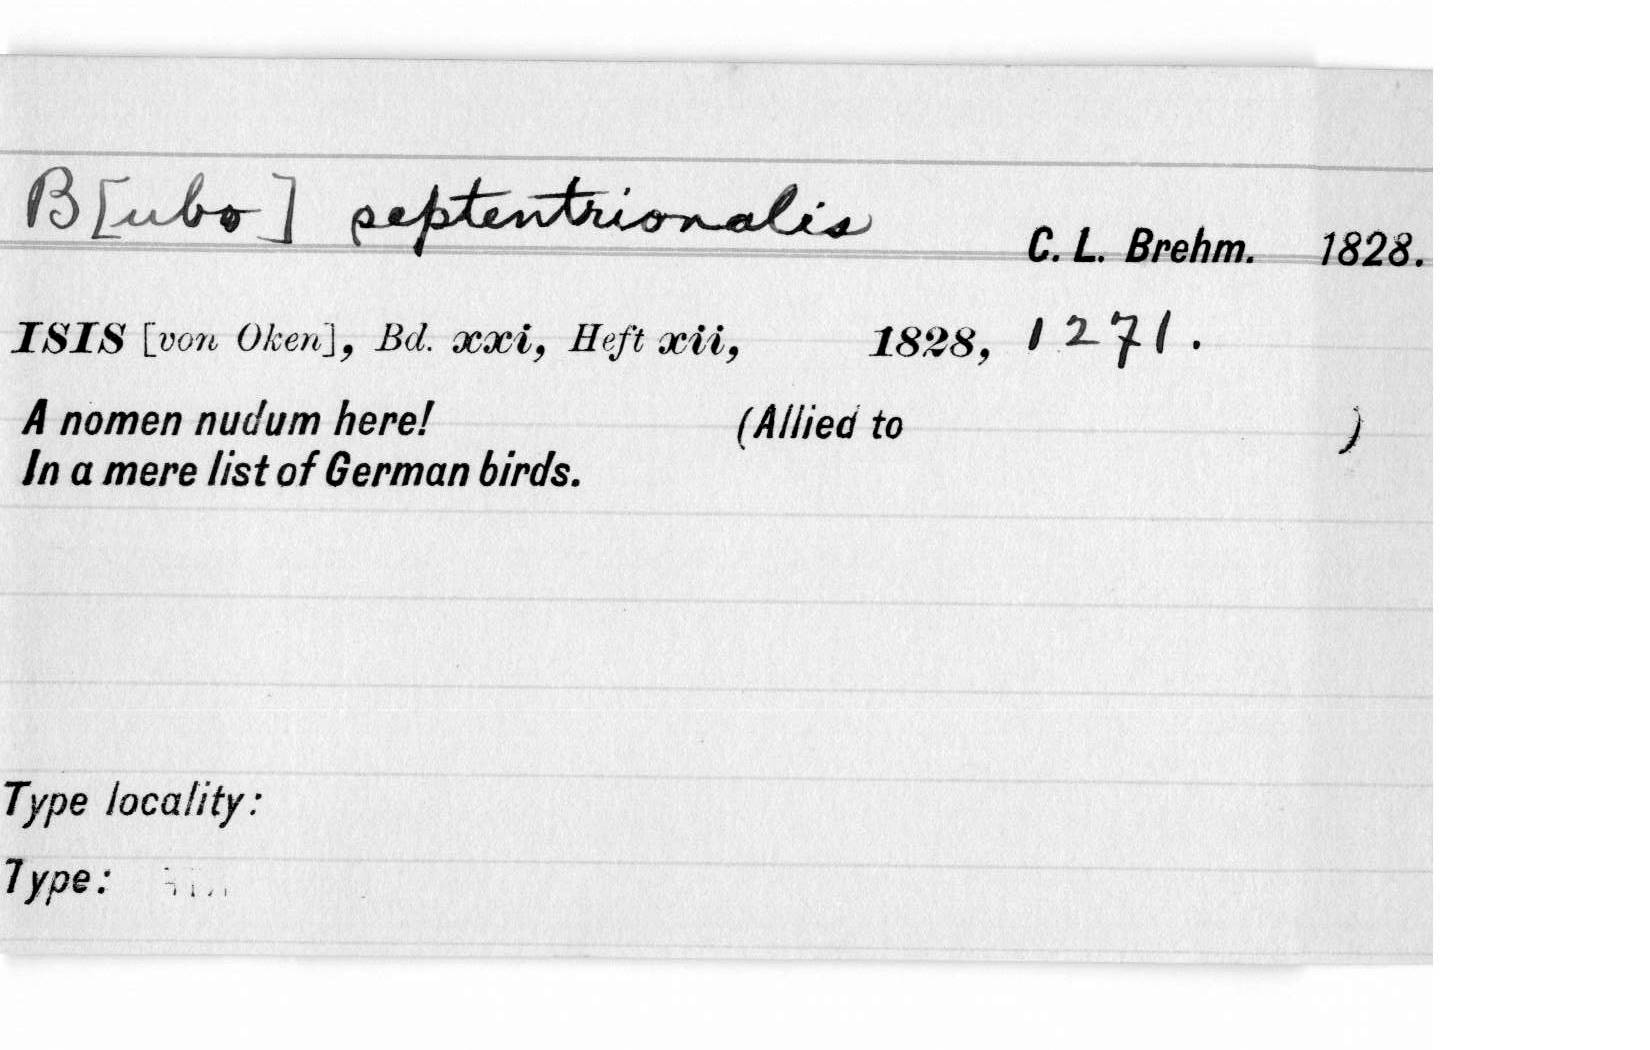 B[ubo] septentrionalis C. L. Brehm. 1828.
ISIS [von Oken], Bd. xxi, Heft xii, 1828, 1271.
A nomen nudum here! (Allied to )
In a mere list of German birds.
Type locality:
Type: